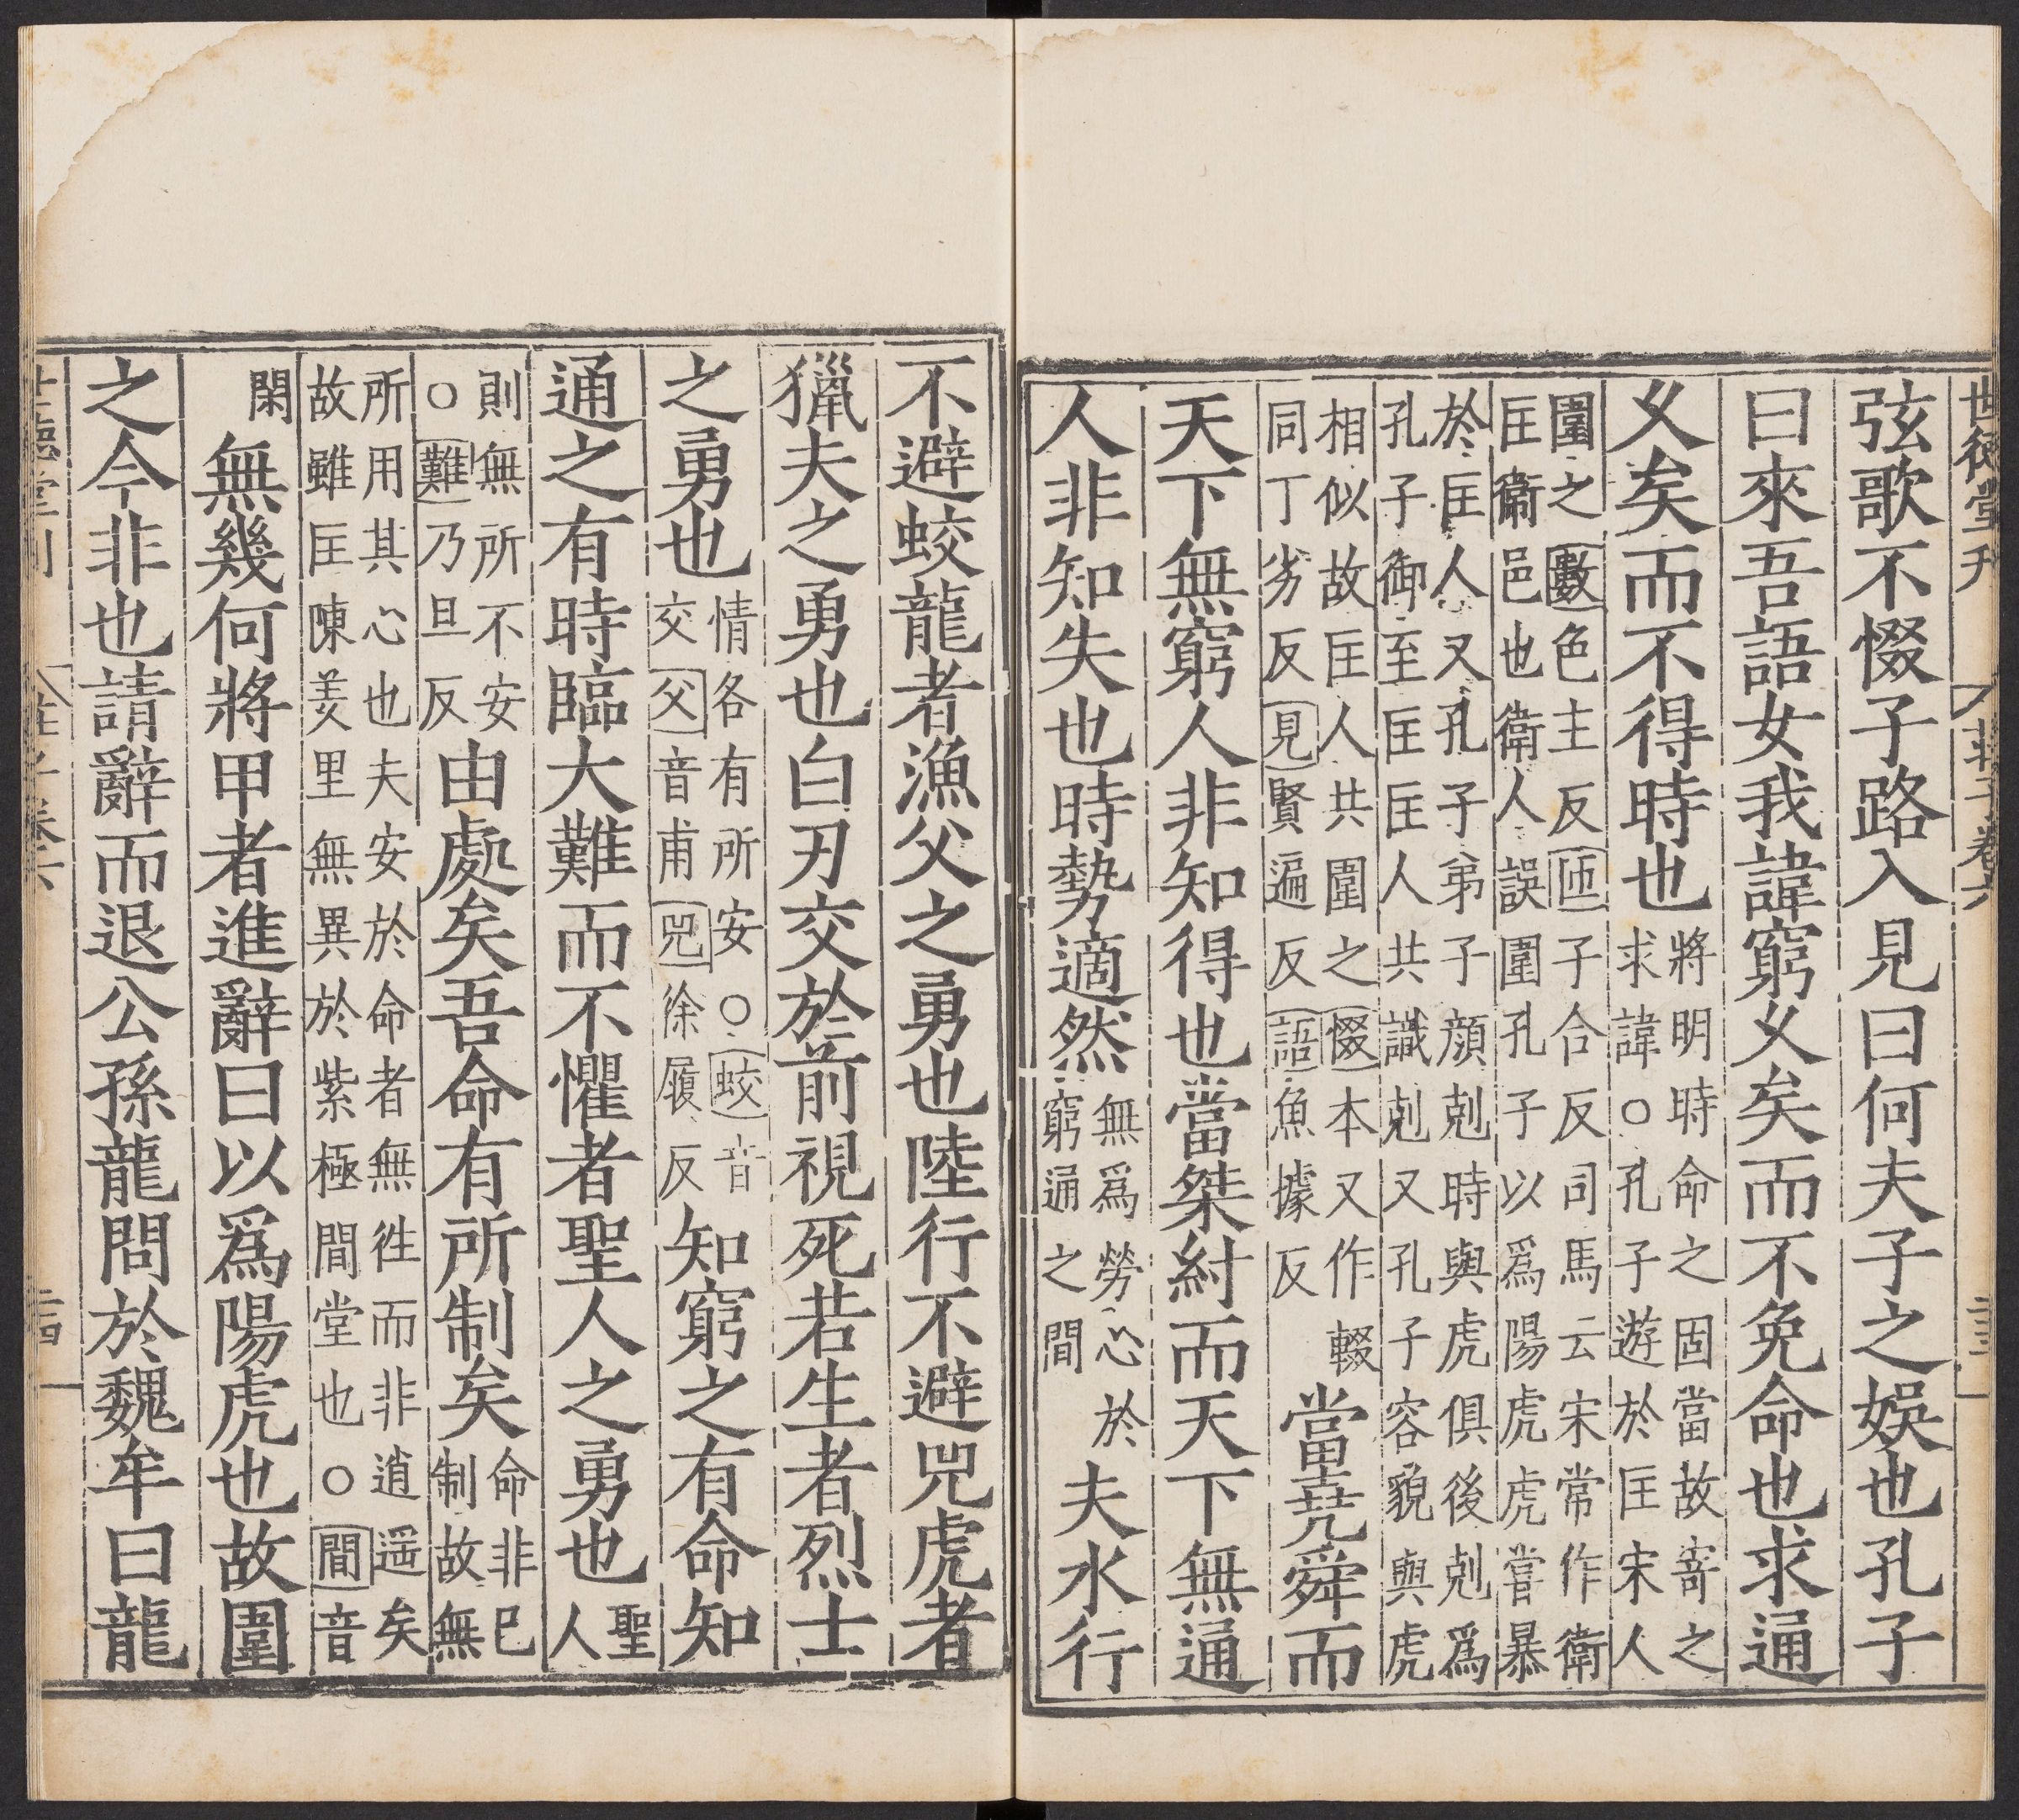 世德堂刊 莊子卷六
弦歌不惙子路入見曰何夫子之娛也孔子
曰來吾語女我諱窮久矣而不免命也求通
久矣而不得時也將明時命之固當故寄之
求諱○孔子遊於匡宋人
圍之數色主反匝子合反司馬云宋常作衛
匡衛邑也衛人誤圍孔子以爲陽虎虎嘗暴
於匡人又孔子弟子顏剋時與虎俱後剋爲
孔子御至匡匡人共識剋又孔子容貌與虎
相似故匡人共圍之惙本又作輟
同丁劣反見賢遍反語魚據反當堯舜而
天下無窮人非知得也當桀紂而天下無通
人非知失也時勢適然無爲勞心於
窮通之間夫水行
不避蛟龍者漁父之勇也陸行不避兕虎者
獵夫之勇也白刃交於前視死若生者烈士
之勇也情各有所安○蛟音
交父音甫兕徐履反知窮之有命知
通之有時臨大難而不懼者聖人之勇也聖
人
則無所不安
○難乃旦反由處矣吾命有所制矣命非己
制故無
所用其心也夫安於命者無往而非逍遥矣
故雖匡陳羑里無異於紫極間堂也○間音
閑無幾何將甲者進辭曰以爲陽虎也故圍
之今非也請辭而退公孫龍問於魏牟曰龍